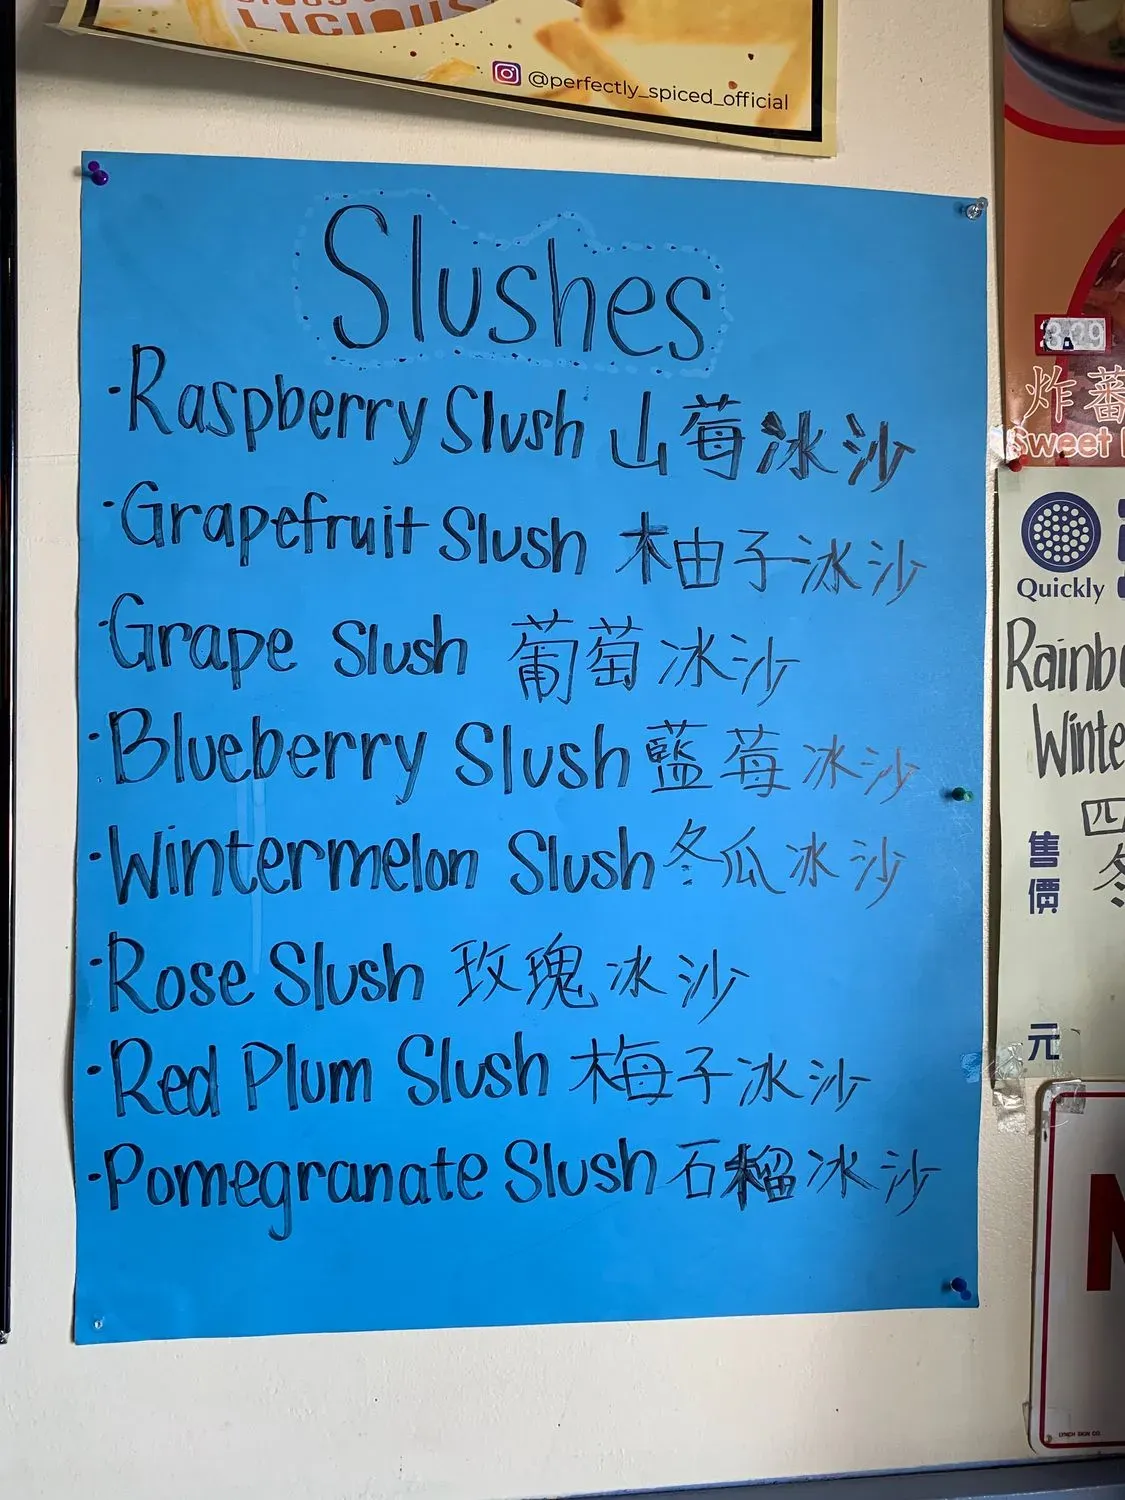 LICIOUS
@perfectly_spiced_official
Slushes
·Raspberry Slush 山莓冰沙
·Grapefruit Slush 柚子冰沙
·Grape Slush 葡萄冰沙
·Blueberry Slush 藍莓冰沙
·Wintermelon Slush 冬瓜冰沙
·Rose Slush 玫瑰冰沙
·Red Plum Slush 梅子冰沙
·Pomegranate Slush 石榴冰沙
3.29
炸蕃
Sweet
Quickly
售價
元
LYNCH SIGN CO.